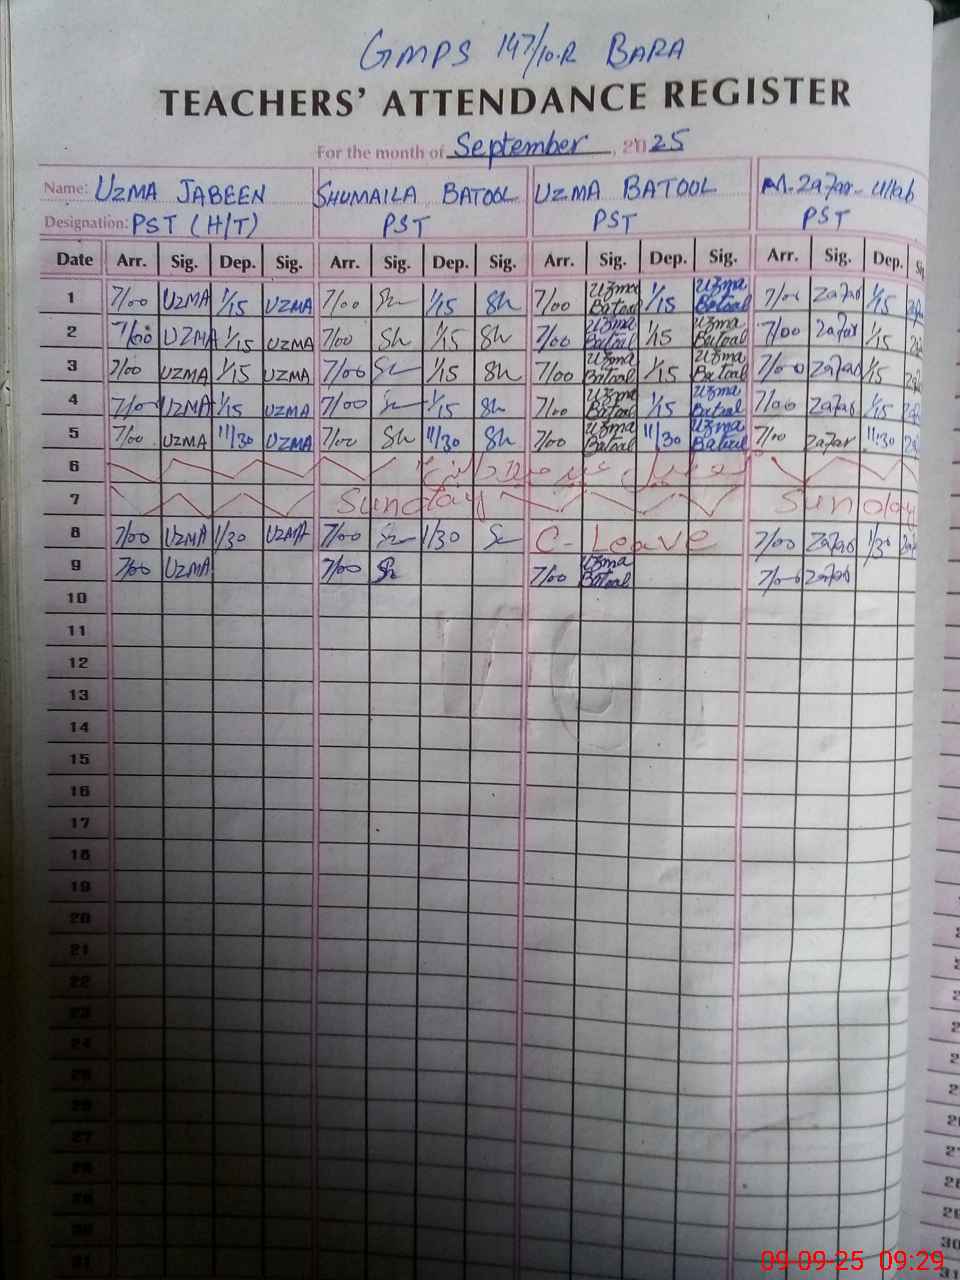 GMPS 147/10.R BARA
TEACHERS' ATTENDANCE REGISTER
For the month of September, 2025
Name: UZMA JABEEN SHUMAILA BATOOL UZMA BATOOL M. Zafar
Designation: PST (H/T) PST PST PST
Date Arr. Sig. Dep. Sig. Arr. Sig. Dep. Sig. Arr. Sig. Dep. Sig. Arr. Sig. Dep.
1 7/00 UZMA 1/15 UZMA 7/00 Sh 1/15 Sh 7/00 Uzma Batool 1/15 Uzma Batool 7/00 Zafar 1/15
2 7/00 UZMA 1/15 UZMA 7/00 Sh 1/15 Sh 7/00 Uzma Batool 1/15 Uzma Batool 7/00 Zafar 1/15
3 7/00 UZMA 1/15 UZMA 7/00 Sh 1/15 Sh 7/00 Uzma Batool 1/15 Uzma Batool 7/00 Zafar 1/15
4 7/00 UZMA 1/15 UZMA 7/00 Sh 1/15 Sh 7/00 Uzma Batool 1/15 Uzma Batool 7/00 Zafar 1/15
5 7/00 UZMA 11/30 UZMA 7/00 Sh 11/30 Sh 7/00 Uzma Batool 11/30 Uzma Batool 7/00 Zafar 11/30
6 تعطیل عید میلاد النبی
7 Sunday Sunday
8 7/00 UZMA 1/30 UZMA 7/00 Sh 1/30 Sh C-Leave 7/00 Zafar 1/30
9 7/00 UZMA 7/00 Sh 7/00 Uzma Batool 7/00 Zafar
10
11
12
13
14
15
16
17
18
19
20
21
22
23
24
25
26
27
28
29
30
31
09-09-25 09:29